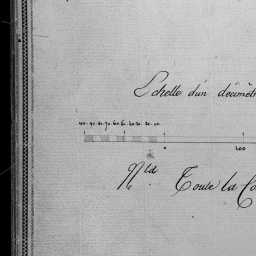 Echelle d'un décimètr
100. 90. 80. 70. 60. 50. 40. 30. 20. 10.
0 100
Nta Toute la Co